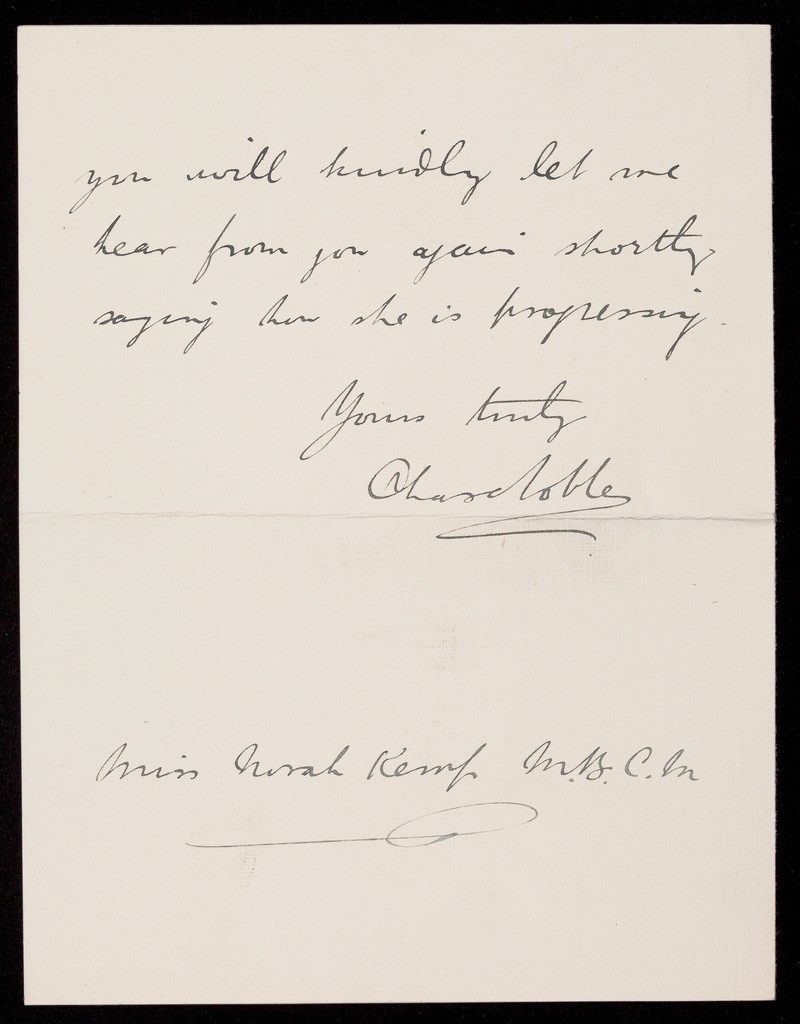 you will kindly let me
hear from you again shortly
saying how she is progressing.
Yours truly
Chas
Miss Norah Kemp M.B.C.M